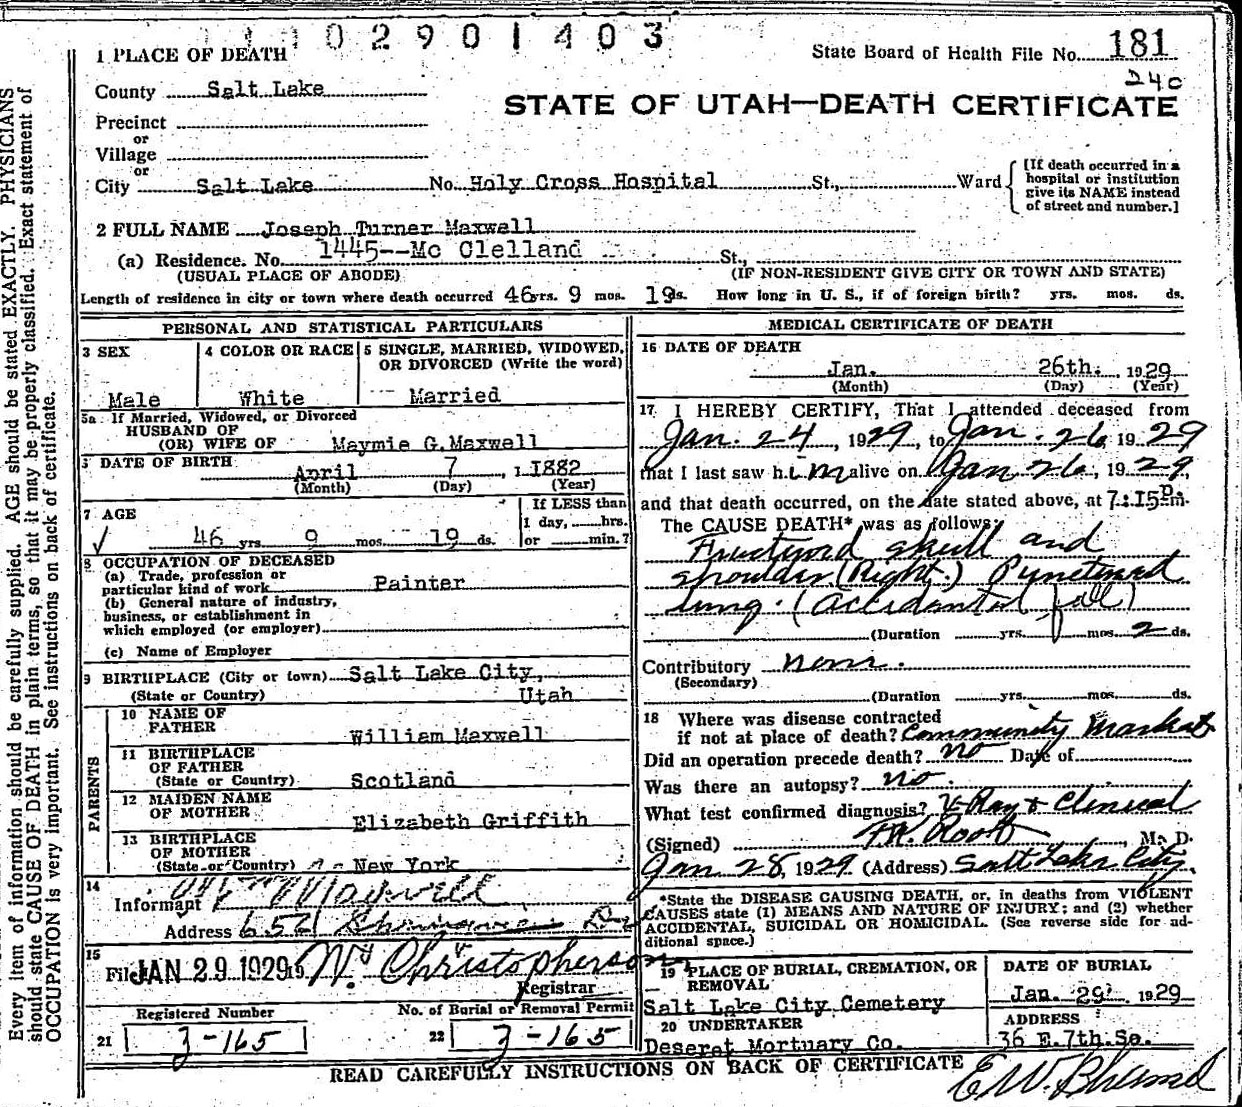 1 1 0 2 9 0 1 4 0 3
1 PLACE OF DEATH
State Board of Health File No. 181
240
County Salt Lake
STATE OF UTAH—DEATH CERTIFICATE
Precinct
or
Village
or
City Salt Lake No. Holy Cross Hospital St., Ward
[If death occurred in a
hospital or institution
give its NAME instead
of street and number.]
2 FULL NAME Joseph Turner Maxwell
(a) Residence. No. 1445--Mc Clelland St.,
(USUAL PLACE OF ABODE) (IF NON-RESIDENT GIVE CITY OR TOWN AND STATE)
Length of residence in city or town where death occurred 46 yrs. 9 mos. 19 ds. How long in U. S., if of foreign birth? yrs. mos. ds.
PERSONAL AND STATISTICAL PARTICULARS
3 SEX
Male
4 COLOR OR RACE
White
5 SINGLE, MARRIED, WIDOWED,
OR DIVORCED (Write the word)
Married
5a If Married, Widowed, or Divorced
HUSBAND OF
(OR) WIFE OF Maymie G. Maxwell
DATE OF BIRTH
April 7 1882
(Month) (Day) (Year)
7 AGE
46 yrs. 9 mos. 19 ds.
If LESS than
1 day, hrs.
or min.?
8 OCCUPATION OF DECEASED
(a) Trade, profession or
particular kind of work Painter
(b) General nature of industry,
business, or establishment in
which employed (or employer)
(c) Name of Employer
9 BIRTHPLACE (City or town) Salt Lake City,
(State or Country) Utah
PARENTS
10 NAME OF
FATHER William Maxwell
11 BIRTHPLACE
OF FATHER
(State or Country) Scotland
12 MAIDEN NAME
OF MOTHER Elizabeth Griffith
13 BIRTHPLACE
OF MOTHER
(State or Country) New York
14
Informant Wm Maxwell
Address 652
15
Filed JAN 29 1929 Christopherson
Registrar
Registered Number
21 3-165
No. of Burial or Removal Permit
22 3-165
MEDICAL CERTIFICATE OF DEATH
16 DATE OF DEATH
Jan. 26th. 1929
(Month) (Day) (Year)
17 I HEREBY CERTIFY, That I attended deceased from
Jan. 24, 1929, to Jan. 26 1929
that I last saw him alive on Jan 26, 1929,
and that death occurred, on the date stated above, at 7:15 P. m.
The CAUSE DEATH* was as follows:
Fractured skull and
shoulder (Right.) Punctured
lung. (Accidental fall)
(Duration yrs. mos. 2 ds.
Contributory none.
(Secondary)
(Duration yrs. mos. ds.
18 Where was disease contracted
if not at place of death? Community Market
Did an operation precede death? no Date of
Was there an autopsy? no.
What test confirmed diagnosis? X-Ray & Clinical
(Signed) Root, M. D.
Jan 28, 1929 (Address) Salt Lake City.
*State the DISEASE CAUSING DEATH, or, in deaths from VIOLENT
CAUSES state (1) MEANS AND NATURE OF INJURY; and (2) whether
ACCIDENTAL, SUICIDAL OR HOMICIDAL. (See reverse side for ad-
ditional space.)
19 PLACE OF BURIAL, CREMATION, OR
REMOVAL
Salt Lake City Cemetery
DATE OF BURIAL
Jan. 29 1929
20 UNDERTAKER
Deseret Mortuary Co.
ADDRESS
36 E. 7th. So.
READ CAREFULLY INSTRUCTIONS ON BACK OF CERTIFICATE
E.W.
Every item of information should be carefully supplied. AGE should be stated EXACTLY. PHYSICIANS
should state CAUSE OF DEATH in plain terms, so that it may be properly classified. Exact statement of
OCCUPATION is very important. See instructions on back of certificate.